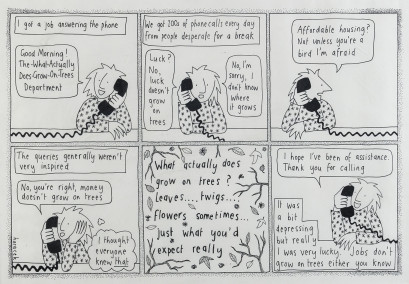 I got a job answering the phone
Good Morning!
The-What-Actually
Does-Grow-On-Trees
Department
We got 200s of phonecalls every day
from people desperate for a break
Luck?
No,
luck
doesn't
grow
on
trees
No, I'm
sorry, I
don't know
where
it grows
Affordable housing?
Not unless you're a
bird I'm afraid
The queries generally weren't
very inspired
No, you're right, money
doesn't grow on trees
I thought
everyone
knew that
What actually does
grow on trees?
Leaves.... twigs....
flowers sometimes...
just what you'd
expect really
I hope I've been of assistance.
Thank you for calling
It was
a bit
depressing
but really
I was very lucky. Jobs don't
grow on trees either you know